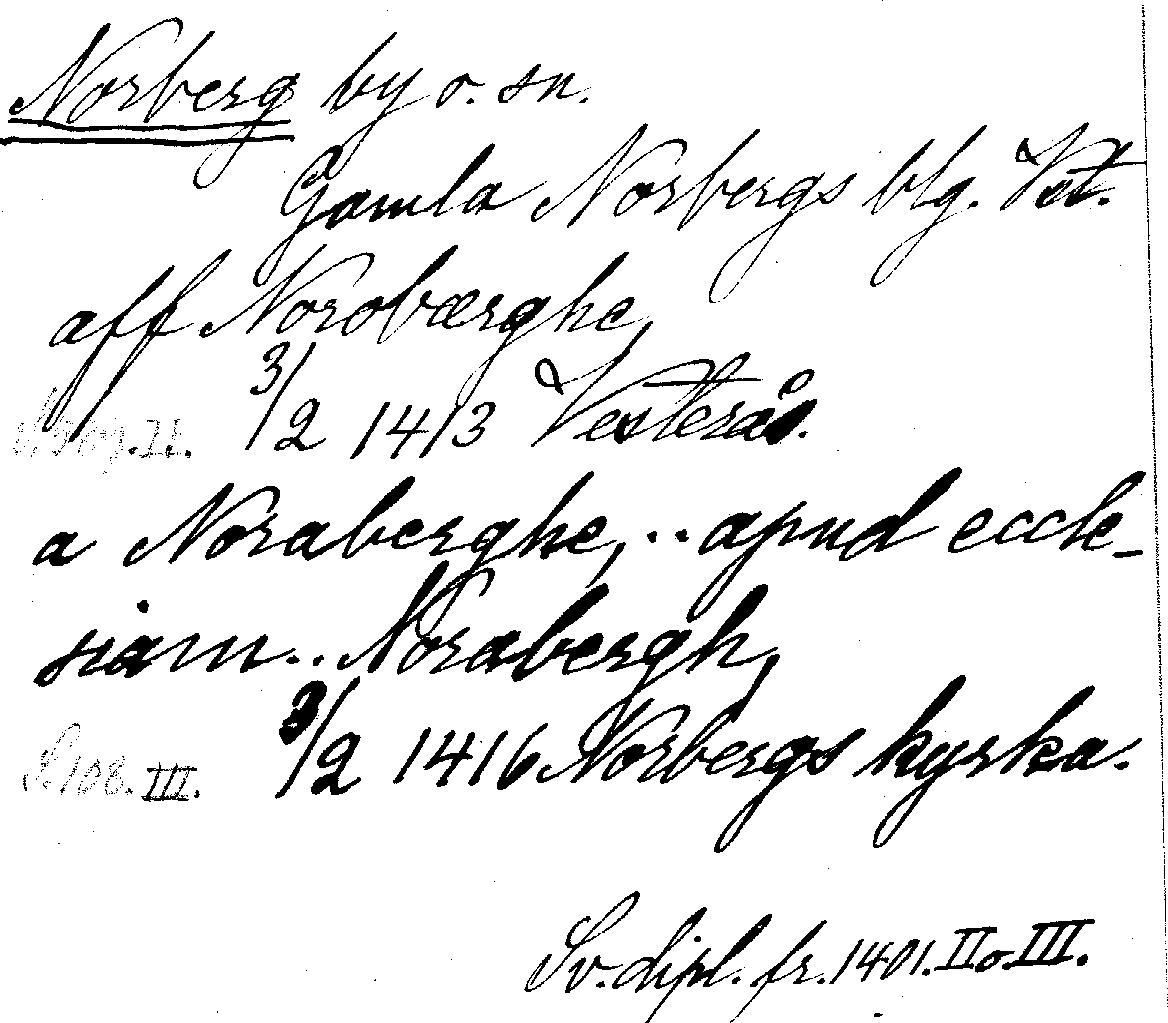 Norberg by o. sn.
Gamla Norbergs blg. Vst.
aff Norobærghe,
3/2 1413 Vesterås.
a Noraberghe, .. apud eccle-
siam .. Norabergh,
S. 108. III. 3/2 1416 Norbergs kyrka.
Sv. dipl. fr. 1401. II o. III.